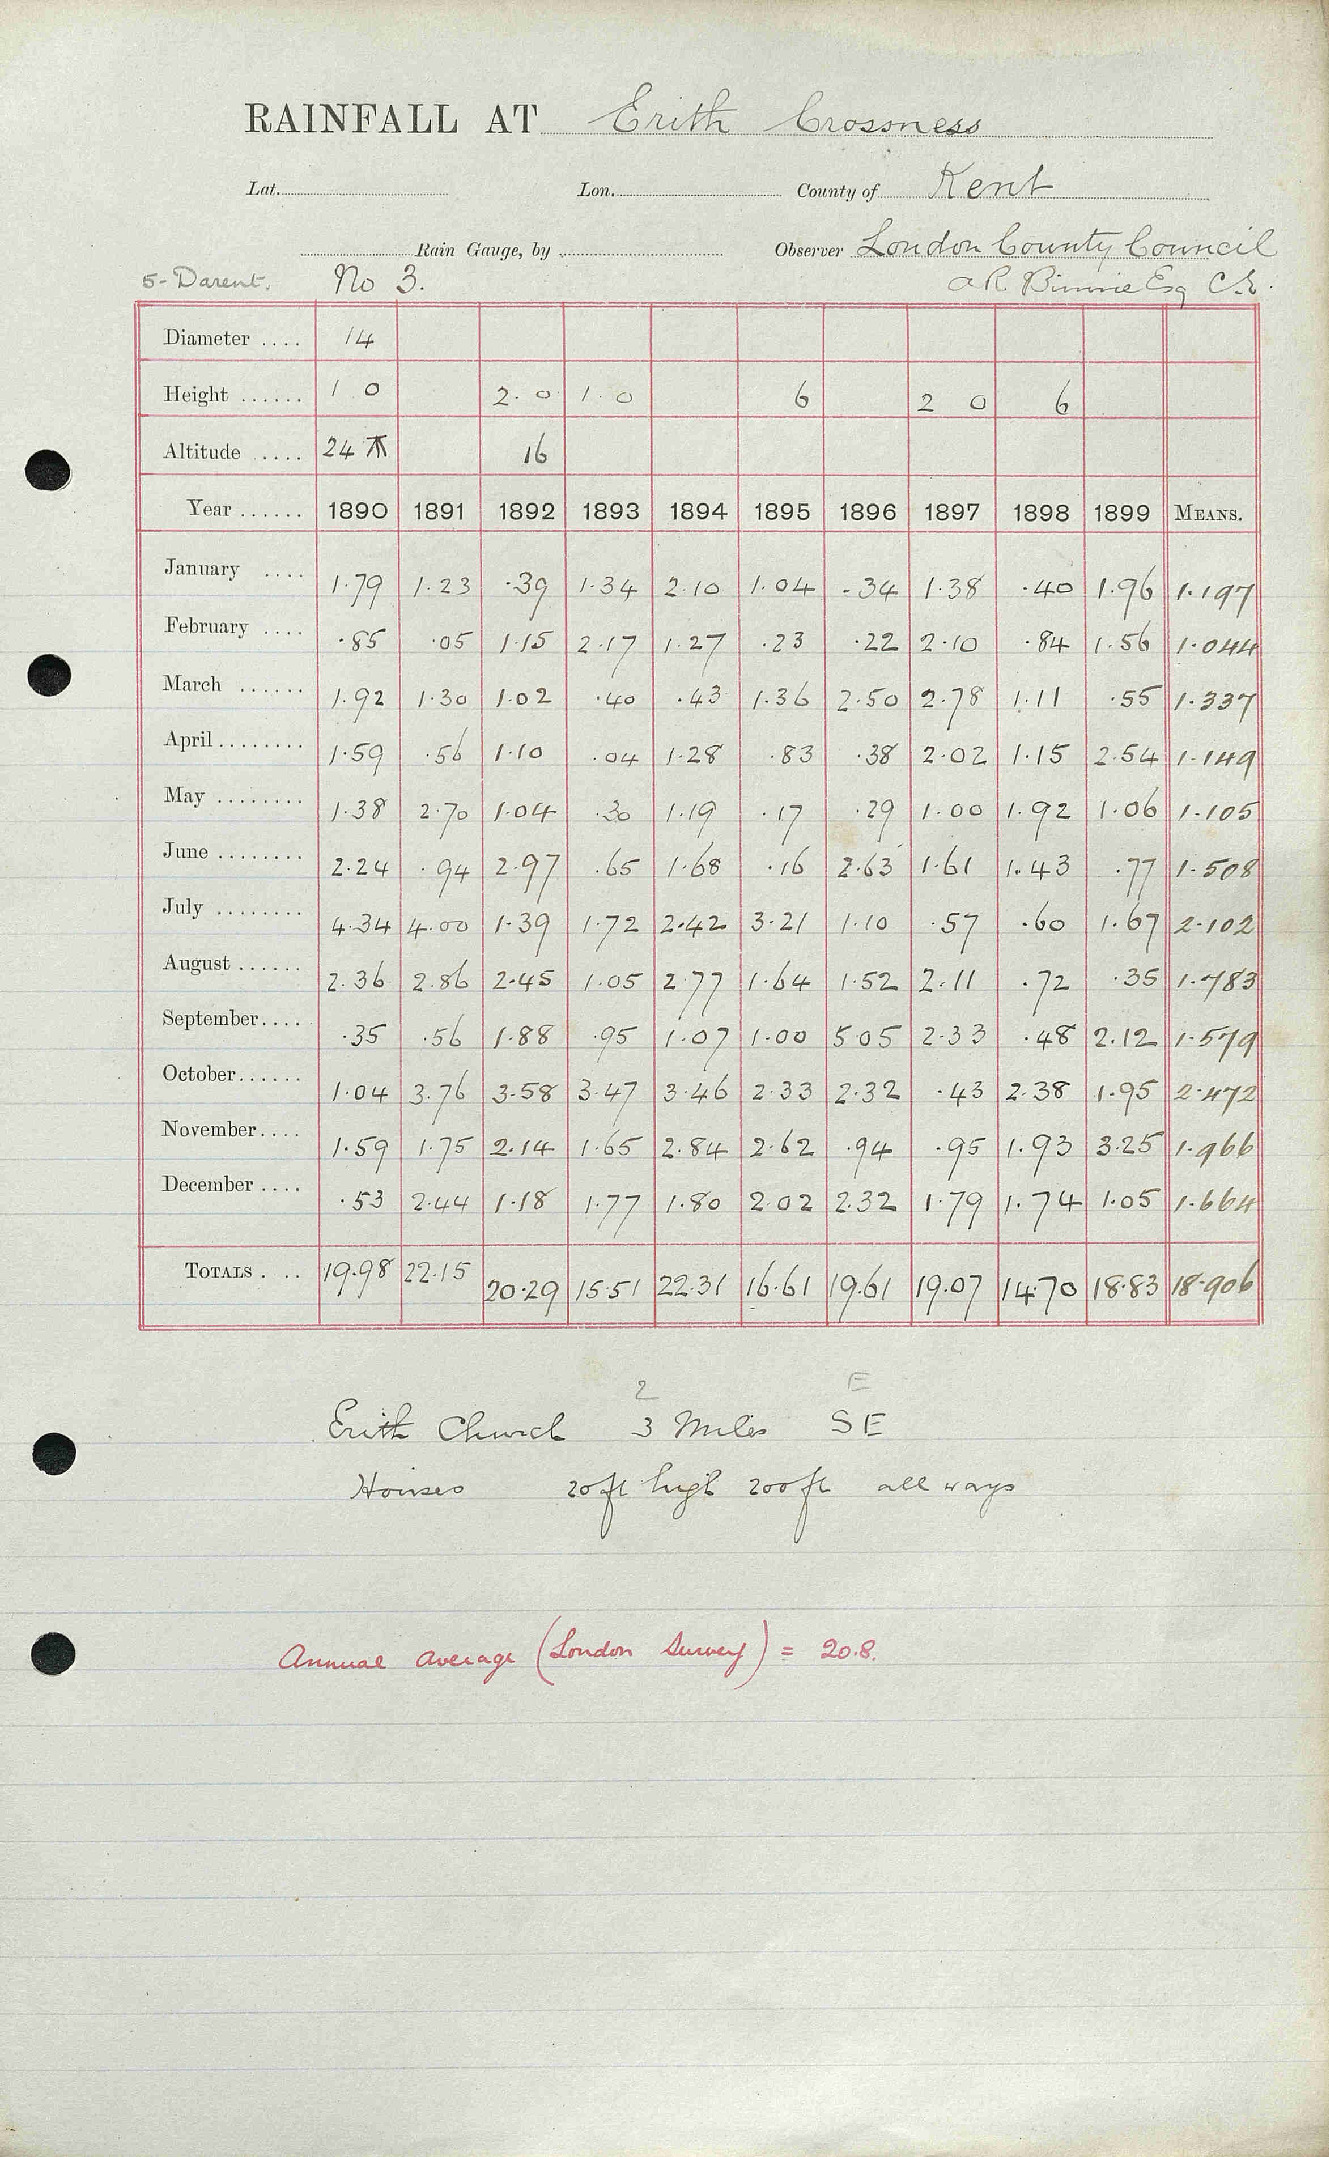 RAINFALL AT Erith Crossness
Lat. Lon. County of Kent
Rain Gauge, by Observer London County Council
5-Darent. No 3. A R Binnie Esq C.E.
Diameter .... 14
Height ...... 1 0 2. 0 1. 0 6 2 0 6
Altitude ..... 24 16
Year ...... 1890 1891 1892 1893 1894 1895 1896 1897 1898 1899 MEANS.
January .... 1.79 1.23 .39 1.34 2.10 1.04 .34 1.38 .40 1.96 1.197
February .... .85 .05 1.15 2.17 1.27 .23 .22 2.10 .84 1.56 1.044
March ...... 1.92 1.30 1.02 .40 .43 1.36 2.50 2.78 1.11 .55 1.337
April ........ 1.59 .56 1.10 .04 1.28 .83 .38 2.02 1.15 2.54 1.149
May ........ 1.38 2.70 1.04 .30 1.19 .17 .29 1.00 1.92 1.06 1.105
June ........ 2.24 .94 2.97 .65 1.68 .16 2.63 1.61 1.43 .77 1.508
July ........ 4.34 4.00 1.39 1.72 2.42 3.21 1.10 .57 .60 1.67 2.102
August ...... 2.36 2.86 2.45 1.05 2.77 1.64 1.52 2.11 .72 .35 1.783
September.... .35 .56 1.88 .95 1.07 1.00 5.05 2.33 .48 2.12 1.579
October...... 1.04 3.76 3.58 3.47 3.46 2.33 2.32 .43 2.38 1.95 2.472
November.... 1.59 1.75 2.14 1.65 2.84 2.62 .94 .95 1.93 3.25 1.966
December .... .53 2.44 1.18 1.77 1.80 2.02 2.32 1.79 1.74 1.05 1.664
TOTALS . ... 19.98 22.15 20.29 15.51 22.31 16.61 19.61 19.07 14.70 18.83 18.906
2 E
Erith Church 3 Miles SE
Houses 20ft high 200ft all ways
Annual average (London Survey) = 20.8.